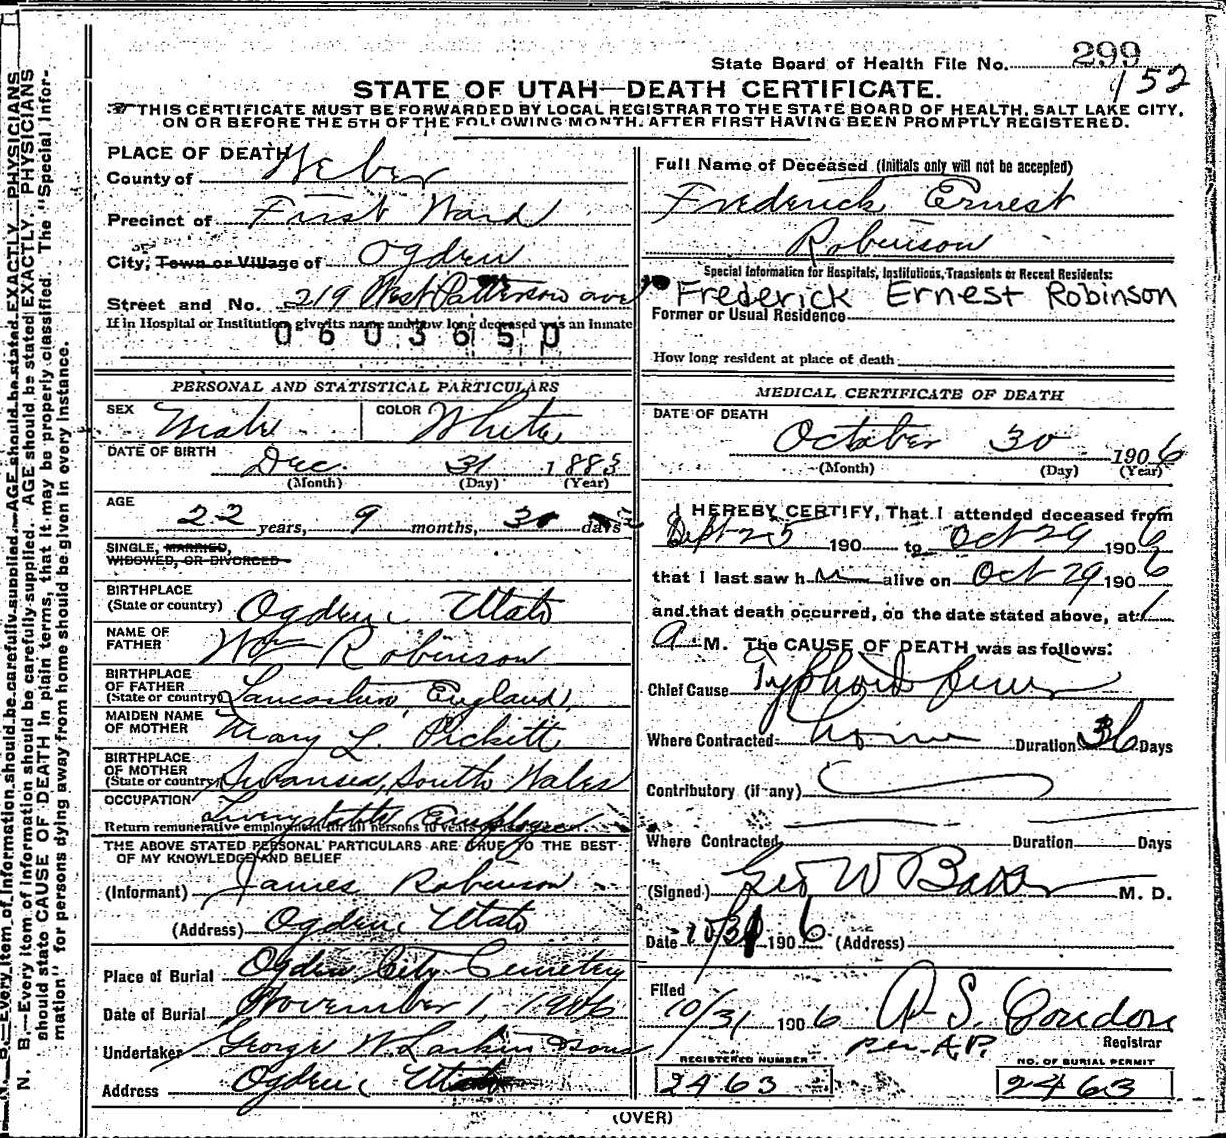 State Board of Health File No. 299
152
STATE OF UTAH—DEATH CERTIFICATE.
THIS CERTIFICATE MUST BE FORWARDED BY LOCAL REGISTRAR TO THE STATE BOARD OF HEALTH, SALT LAKE CITY,
ON OR BEFORE THE 5TH OF THE FOLLOWING MONTH, AFTER FIRST HAVING BEEN PROMPTLY REGISTERED.
PLACE OF DEATH
County of Weber
Precinct of First Ward
City, Town or Village of Ogden
Street and No. 219 West Patterson ave
If in Hospital or Institution give its name and how long deceased was an inmate
0603650
PERSONAL AND STATISTICAL PARTICULARS
SEX Male COLOR White
DATE OF BIRTH Dec. 31 1883
(Month) (Day) (Year)
AGE
22 years, 9 months, 30 days
SINGLE, MARRIED,
WIDOWED, OR DIVORCED
BIRTHPLACE
(State or country) Ogden Utah
NAME OF
FATHER Wm Robinson
BIRTHPLACE
OF FATHER
(State or country) England,
MAIDEN NAME
OF MOTHER Mary L. Pickett
BIRTHPLACE
OF MOTHER
(State or country) Swansea, South Wales
OCCUPATION Employee
Return remunerative employment for all persons 10 years
THE ABOVE STATED PERSONAL PARTICULARS ARE TRUE TO THE BEST
OF MY KNOWLEDGE AND BELIEF
(Informant) James Robinson
(Address) Ogden Utah
Place of Burial Ogden City Cemetery
Date of Burial November 1, 1906
Undertaker George W. Larkin & Sons
Address Ogden Utah
Full Name of Deceased (Initials only will not be accepted)
Frederick Ernest
Robinson
Special Information for Hospitals, Institutions, Transients or Recent Residents:
Frederick Ernest Robinson
Former or Usual Residence
How long resident at place of death
MEDICAL CERTIFICATE OF DEATH
DATE OF DEATH
October 30 1906
(Month) (Day) (Year)
I HEREBY CERTIFY, That I attended deceased from
Sept 25 190 to Oct 29 1906
that I last saw him alive on Oct 29 1906
and that death occurred, on the date stated above, at 1
a M. The CAUSE OF DEATH was as follows:
Chief Cause Typhoid fever
Where Contracted home Duration 36 Days
Contributory (if any)
Where Contracted Duration Days
(Signed) Geo W Baker M. D.
Date 10/31 1906 (Address)
Filed
10/31 1906 P. S. Condon
per A.P. Registrar
REGISTERED NUMBER
2463
NO. OF BURIAL PERMIT
2463
(OVER)
N. B.—Every item of information should be carefully supplied. AGE should be stated EXACTLY. PHYSICIANS
should state CAUSE OF DEATH in plain terms, that it may be properly classified. The "Special Information" for persons dying away from home should be given in every instance.